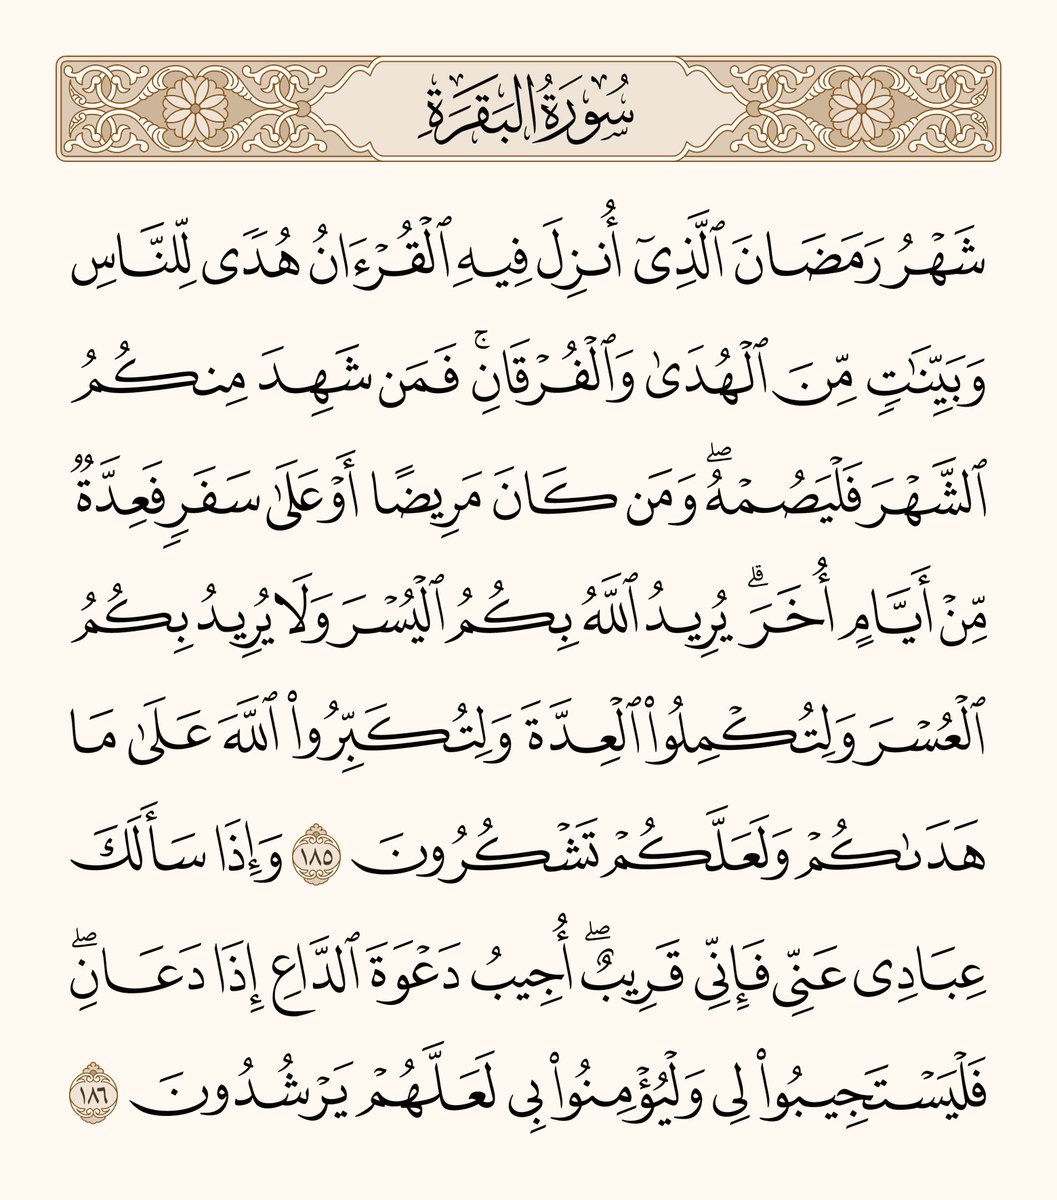 سُورَةُ البَقَرَةِ
شَهۡرُ رَمَضَانَ ٱلَّذِيٓ أُنزِلَ فِيهِ ٱلۡقُرۡءَانُ هُدٗى لِّلنَّاسِ
وَبَيِّنَٰتٖ مِّنَ ٱلۡهُدَىٰ وَٱلۡفُرۡقَانِۚ فَمَن شَهِدَ مِنكُمُ
ٱلشَّهۡرَ فَلۡيَصُمۡهُۖ وَمَن كَانَ مَرِيضًا أَوۡ عَلَىٰ سَفَرٖ فَعِدَّةٞ
مِّنۡ أَيَّامٍ أُخَرَۗ يُرِيدُ ٱللَّهُ بِكُمُ ٱلۡيُسۡرَ وَلَا يُرِيدُ بِكُمُ
ٱلۡعُسۡرَ وَلِتُكۡمِلُواْ ٱلۡعِدَّةَ وَلِتُكَبِّرُواْ ٱللَّهَ عَلَىٰ مَا
هَدَىٰكُمۡ وَلَعَلَّكُمۡ تَشۡكُرُونَ ١٨٥ وَإِذَا سَأَلَكَ
عِبَادِي عَنِّي فَإِنِّي قَرِيبٌۖ أُجِيبُ دَعۡوَةَ ٱلدَّاعِ إِذَا دَعَانِۖ
فَلۡيَسۡتَجِيبُواْ لِي وَلۡيُؤۡمِنُواْ بِي لَعَلَّهُمۡ يَرۡشُدُونَ ١٨٦